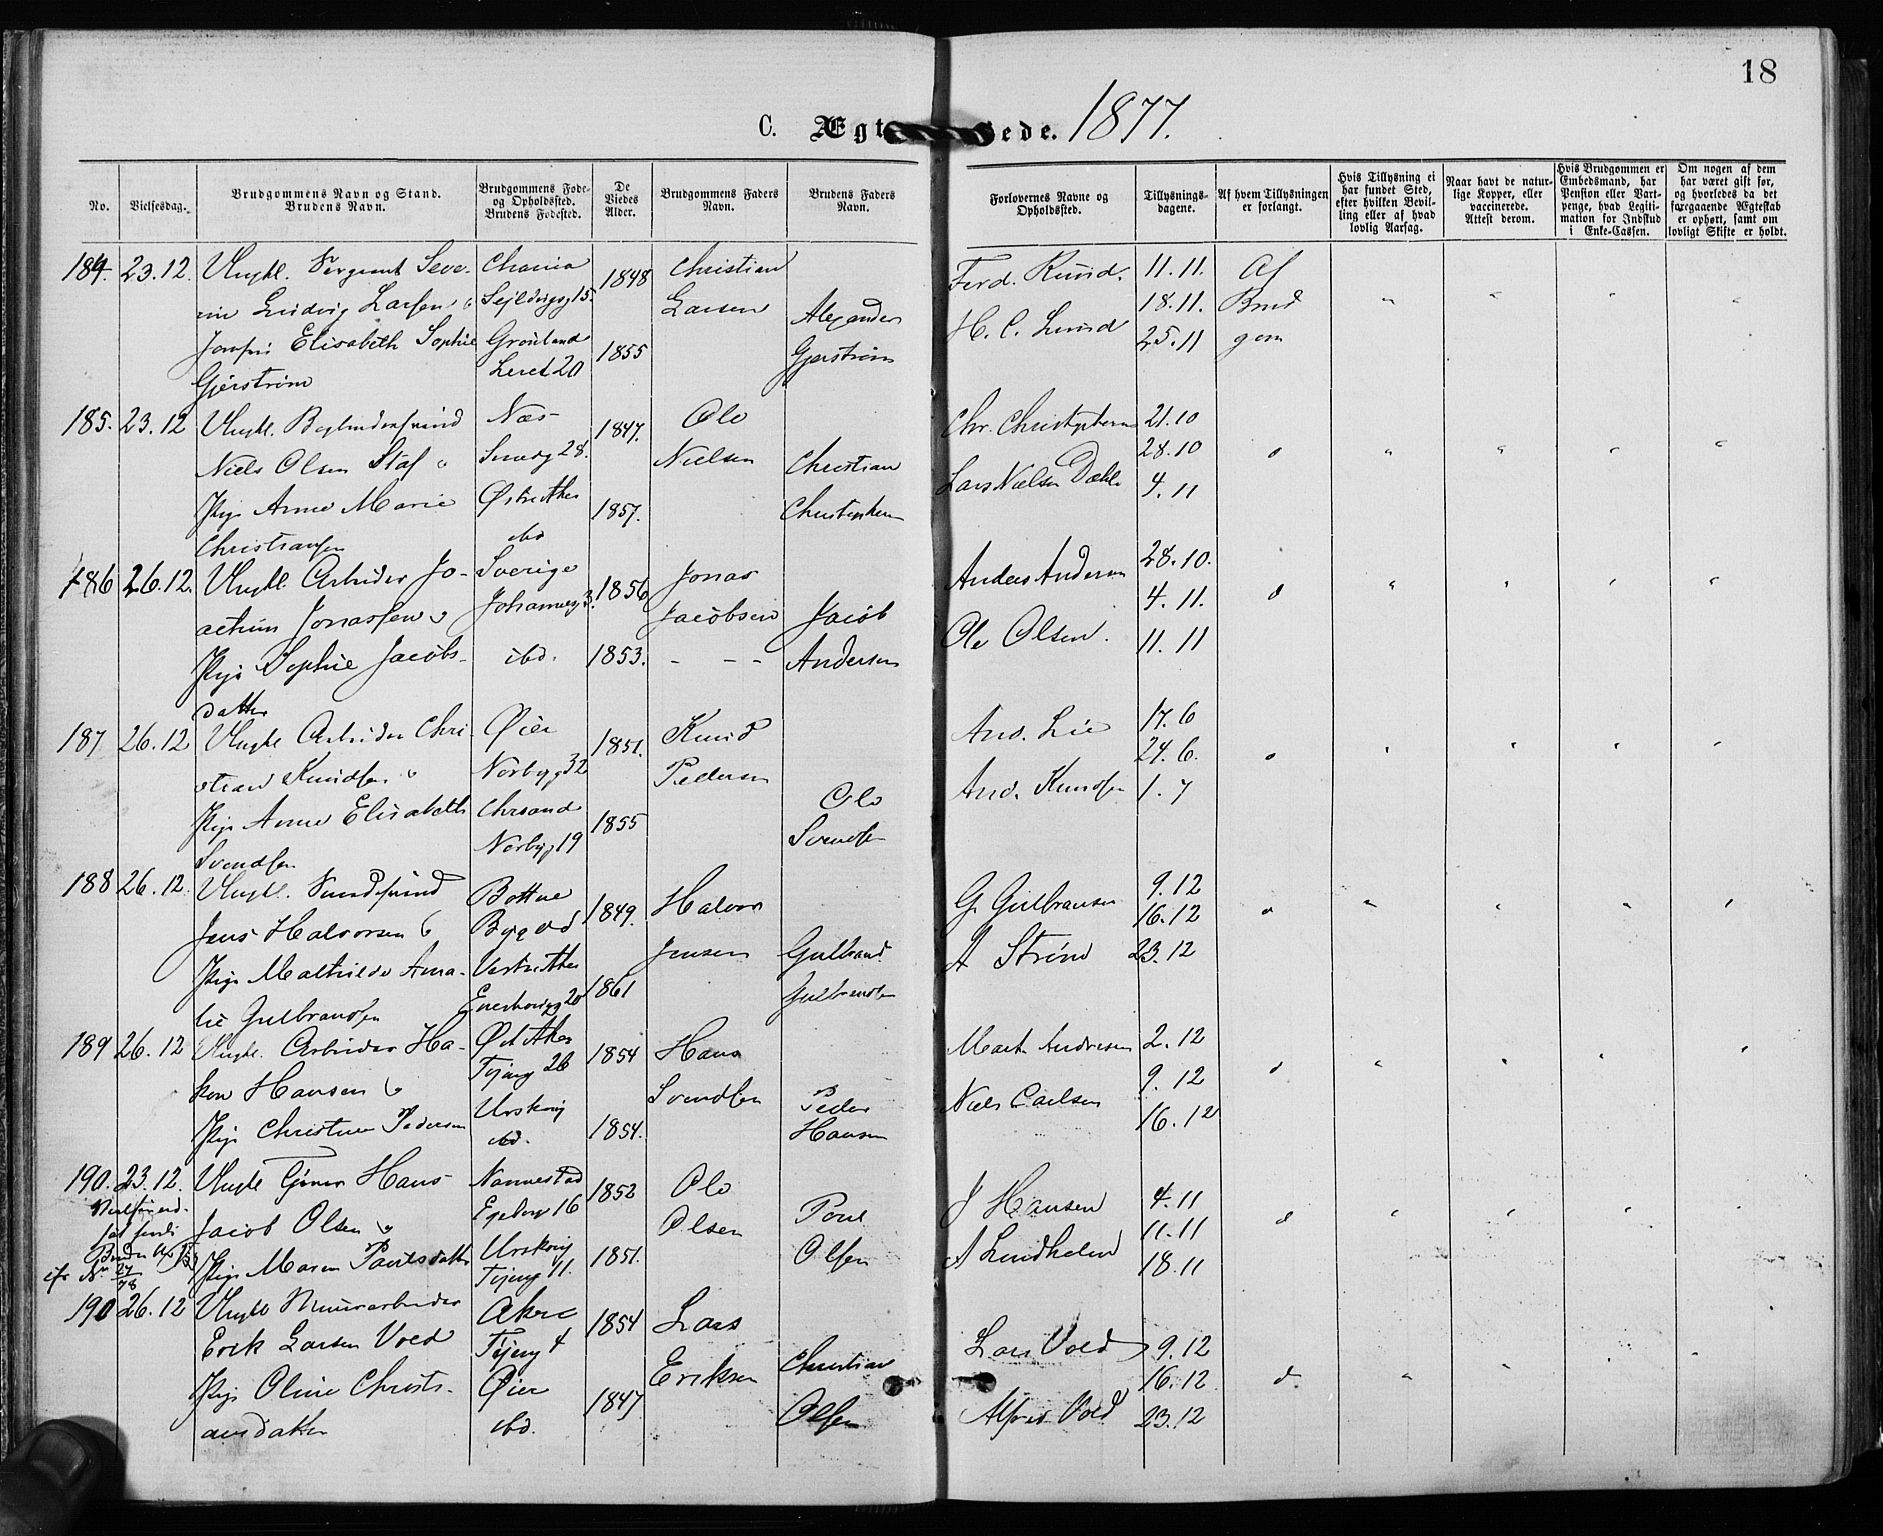 18
C. Ægt ede. 1877.
No.
Vielsesdag.
Brudgommens Navn og Stand.
Brudens Navn.
Brudgommens Føde-
og Opholdssted.
Brudens Fødested.
De
Viedes
Alder.
Brudgommens Faders
Navn.
Brudens Faders
Navn.
Forlovernes Navne og
Opholdssted.
Tillysnings-
dagene.
Af hvem Tillysningen
er forlangt.
Hvis Tillysning ei
har fundet Sted,
efter hvilken Bevil-
ling eller af hvad
lovlig Aarsag.
Naar havt de natur-
lige Kopper, eller
vaccinerede.
Attest derom.
Hvis Brudgommen er
Embedsmand, har
Pension eller Vart-
penge, hvad Legiti-
mation for Indskud
i Enke-Cassen.
Om nogen af dem
har været gift før,
og hvorledes da det
foregaaende Ægteskab
er ophørt, samt om
lovligt Skifte er holdt.
184. 23.12. Ungkl. Sergeant Seve- Chania 1848 Christian Ferd. Rund. 11.11. Af
rin Ludvig Larsen Sejldugsg 15. Larsen Alexander 18.11. Brud
Jomfru Elisabeth Sophie Grønland 1855 H. C. Lund 25.11 gom
Gjerstrøm Leret 20 Gjerstrøm
185. 23.12 Ungkl. Næs 1847. Ole Chr. Christophersen 21.10
Niels Olsen Staf Smedg 28. Nielsen Christian 28.10
Pige Anne Marie Østre Aker 1857. Christophersen Lars Nielsen Dæhle 4.11
Christiansen ibd
186 26.12. Ungkl. Arbeider Jo- Sverige 1856 Jonas Anders Andersen 28.10.
achim Jonassen Johannesg 3. Jacobsen Jacob 4.11.
Pige Sophie Jacobs- ibd. 1853. - - - Andersen Ole Olsen. 11.11
datter
187 26.12 Ungkl Arbeider Chri- Øier 1851. Knud And. Lie 17.6
stian Knudsen Norbyg 32 Pedersen 24.6.
Pige Anne Elisabeth Chrsand 1855 Ole And. Knudsen 1.7
Svendsen Norbyg 19 Svendsen
188 26.12. Ungkl. Botne 1849. Halvor G. Gulbransen 9.12
Jens Halvorsen Bygd Jensen Gulbrand 16.12
Pige Mathilde Ama- Vestre Aker 1861 Gulbrandsen A Strøm 23.12
lie Gulbrandsen 20
189 26.12 Ungkl. Arbeider Ha- Øst Aker 1854 Hans Mart. Andresen 2.12
kon Hansen Tøjeng 26 Svendsen Peder 9.12
Pige Christine Pedersen Urskoug 1854. Hansen Niels Carlsen 16.12
ibd.
190. 23.12. Ungkl Hans Nannestad 1852 Ole J Hansen 4.11
Jacob Olsen Egebrg 16 Olsen Poul 11.11
Pige Maren Paulsdatter Urskoug 1851. Olsen A Lindholm 18.11
Tøjeng 11.
190 26.12 Ungkl Murarbeider Aker 1854 Lars Lars Vold 9.12
Erik Larsen Vold Tøjeng 4 Eriksen Christian 16.12 d.
Pige Oline Christi- Øier 1847 Olsen Alfred Vold 23.12
ansdatter ibd.